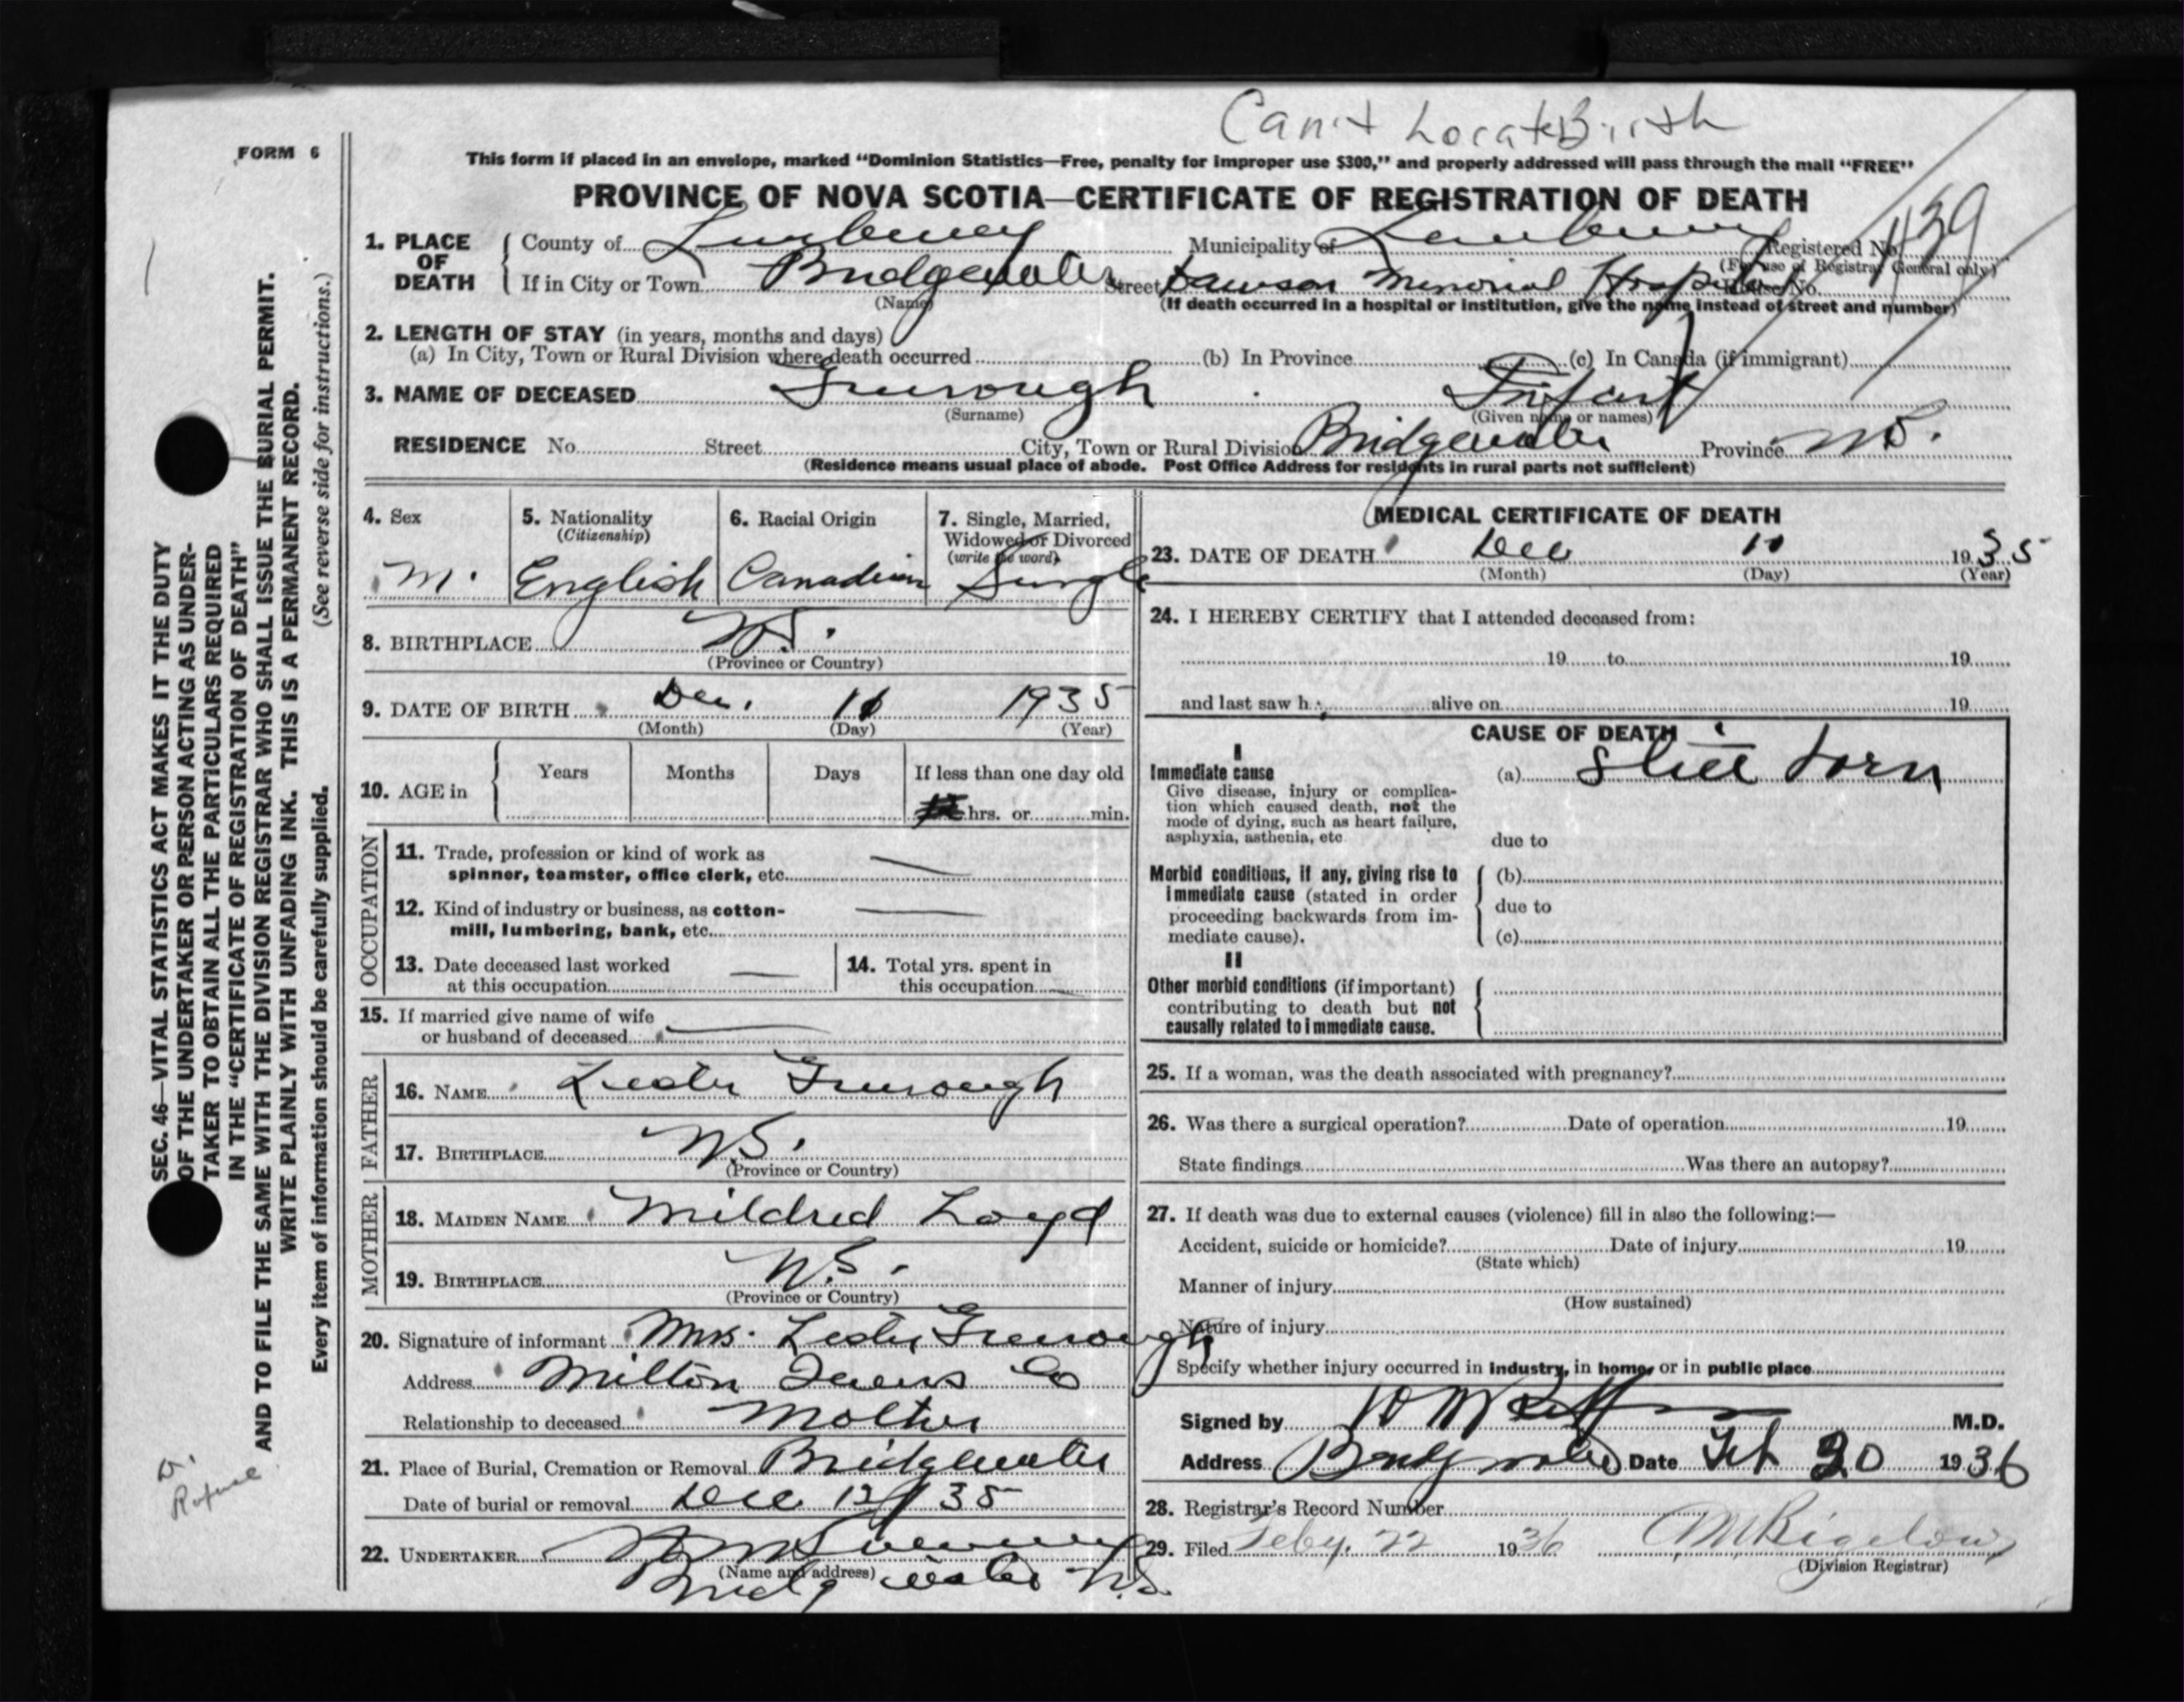 Can't Locate Birth
FORM 6
This form if placed in an envelope, marked "Dominion Statistics—Free, penalty for improper use $300," and properly addressed will pass through the mail "FREE"
PROVINCE OF NOVA SCOTIA—CERTIFICATE OF REGISTRATION OF DEATH
1. PLACE OF DEATH { County of Lunenburg Municipality of Lunenburg Registered No.
(For use of Registrar General only)
If in City or Town Bridgewater Street Dawson Memorial Hospital House No.
(Name) (If death occurred in a hospital or institution, give the name instead of street and number)
2. LENGTH OF STAY (in years, months and days)
(a) In City, Town or Rural Division where death occurred (b) In Province (c) In Canada (if immigrant)
3. NAME OF DECEASED Infant
(Surname) (Given name or names)
RESIDENCE No. Street City, Town or Rural Division Bridgewater Province N.S.
(Residence means usual place of abode. Post Office Address for residents in rural parts not sufficient)
4. Sex
M.
5. Nationality
(Citizenship)
English
6. Racial Origin
Canadian
7. Single, Married,
Widowed or Divorced
(write the word)
Single
8. BIRTHPLACE N.S.
(Province or Country)
9. DATE OF BIRTH Dec. 11 1935
(Month) (Day) (Year)
10. AGE in { Years Months Days If less than one day old
hrs. or min.
OCCUPATION
11. Trade, profession or kind of work as
spinner, teamster, office clerk, etc. —
12. Kind of industry or business, as cotton-
mill, lumbering, bank, etc. —
13. Date deceased last worked
at this occupation —
14. Total yrs. spent in
this occupation —
15. If married give name of wife
or husband of deceased —
FATHER
16. NAME Lester
17. BIRTHPLACE N.S.
(Province or Country)
MOTHER
18. MAIDEN NAME Mildred Loyd
19. BIRTHPLACE N.S.
(Province or Country)
20. Signature of informant Mrs. Lester
Address Milton Queens Co
Relationship to deceased Mother
21. Place of Burial, Cremation or Removal Bridgewater
Date of burial or removal Dec 12/35
22. UNDERTAKER
(Name and address)
Bridgewater N.S.
MEDICAL CERTIFICATE OF DEATH
23. DATE OF DEATH Dec 11 1935
(Month) (Day) (Year)
24. I HEREBY CERTIFY that I attended deceased from:
19 to 19
and last saw h alive on 19
CAUSE OF DEATH
I
Immediate cause
Give disease, injury or complica-
tion which caused death, not the
mode of dying, such as heart failure,
asphyxia, asthenia, etc
(a) Still born
due to
Morbid conditions, if any, giving rise to
immediate cause (stated in order
proceeding backwards from im-
mediate cause).
(b)
due to
(c)
II
Other morbid conditions (if important)
contributing to death but not
causally related to immediate cause.
25. If a woman, was the death associated with pregnancy?
26. Was there a surgical operation? Date of operation 19
State findings Was there an autopsy?
27. If death was due to external causes (violence) fill in also the following:—
Accident, suicide or homicide? Date of injury 19
(State which)
Manner of injury
(How sustained)
Nature of injury
Specify whether injury occurred in industry, in home, or in public place
Signed by M.D.
Address Bridgewater Date Feb 20 1936
28. Registrar's Record Number
29. Filed Feby. 22 1936 M Bigelow
(Division Registrar)
SEC. 46—VITAL STATISTICS ACT MAKES IT THE DUTY
OF THE UNDERTAKER OR PERSON ACTING AS UNDER-
TAKER TO OBTAIN ALL THE PARTICULARS REQUIRED
IN THE "CERTIFICATE OF REGISTRATION OF DEATH"
AND TO FILE THE SAME WITH THE DIVISION REGISTRAR WHO SHALL ISSUE THE BURIAL PERMIT.
WRITE PLAINLY WITH UNFADING INK. THIS IS A PERMANENT RECORD.
Every item of information should be carefully supplied. (See reverse side for instructions.)